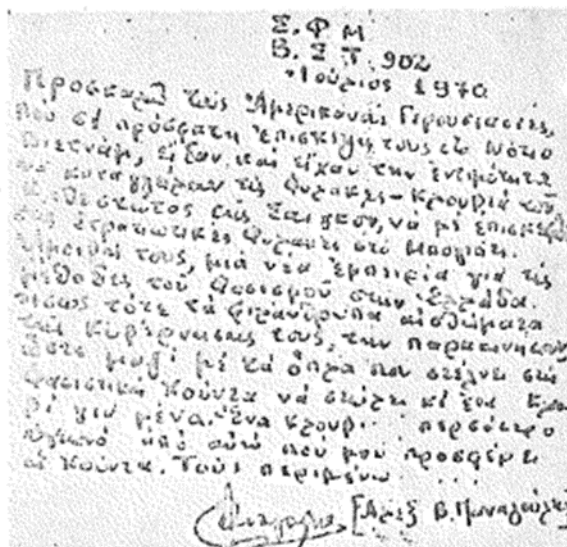 Σ. Φ. Μ
Β. Σ. Τ. 902
Ἰούλιος 1970
Προσκαλῶ τούς Ἀμερικανούς Γερουσιαστές,
πού σέ πρόσφατη ἐπίσκεψή τους στό Νότιο
Βιετνάμ, εἶδαν καί εἶχαν τήν ἐντιμότητα
νά καταγγείλουν τίς Φυλακές-Κλουβιά τοῦ
στῆς Σαιγκόν, νά μέ
στίς στρατιωτικές Φυλακές στό Μπογιάτι.
τους, μιά νέα ἐμπειρία γιά τίς
μεθόδες τοῦ Φασισμοῦ στήν Ἑλλάδα.
ἴσως τότε τά φιλάνθρωπα αἰσθήματα
τῆς Κυβέρνησής τους, τήν παρακινήσουν
ὥστε μαζί μέ τά ὅπλα πού στέλνει στή
Φασιστική Χούντα νά στείλει κι ἕνα κλου
βί γιά μένα. Ἕνα κλουβί περσότερο
ἀπό αὐτό πού μου προσφέρει
ἡ Χούντα. Τούς περιμένω...
[Ἀλέξ. Β. Παναγούλης]